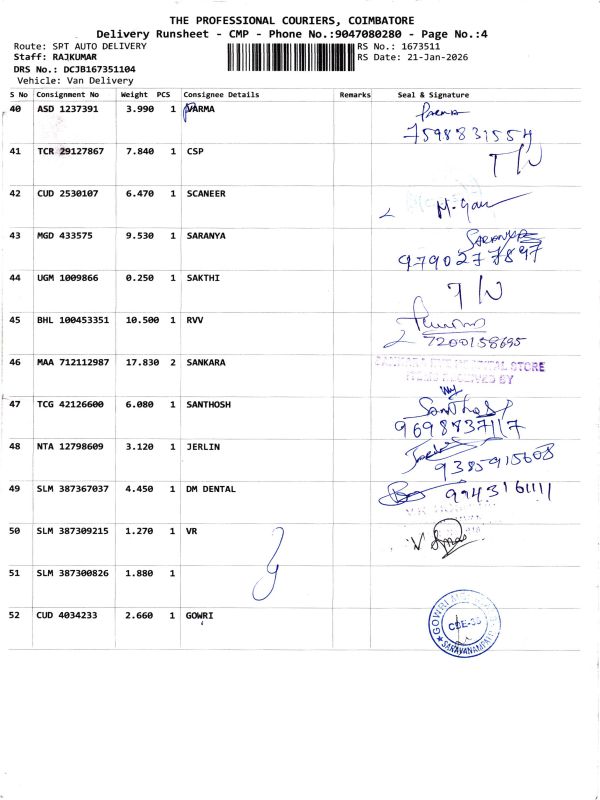 THE PROFESSIONAL COURIERS, COIMBATORE
Delivery Runsheet - CMP - Phone No.:9047080280 - Page No.:4
Route: SPT AUTO DELIVERY
RS No.: 1673511
Staff: RAJKUMAR
RS Date: 21-Jan-2026
DRS No.: DCJB167351104
Vehicle: Van Delivery
S No Consignment No Weight PCS Consignee Details Remarks Seal & Signature
40 ASD 1237391 3.990 1 VARMA
7598831554
41 TCR 29127867 7.840 1 CSP
42 CUD 2530107 6.470 1 SCANEER
43 MGD 433575 9.530 1 SARANYA SARANYA
9790277897
44 UGM 1009866 0.250 1 SAKTHI
45 BHL 100453351 10.500 1 RVV
7200158695
46 MAA 712112987 17.830 2 SANKARA
STORE
ITEMS RECEIVED BY
47 TCG 42126600 6.080 1 SANTHOSH Santhosh
9698737117
48 NTA 12798609 3.120 1 JERLIN
9385915608
49 SLM 387367037 4.450 1 DM DENTAL 9943161111
50 SLM 387309215 1.270 1 VR
51 SLM 387300826 1.880 1
52 CUD 4034233 2.660 1 GOWRI
CBE-35